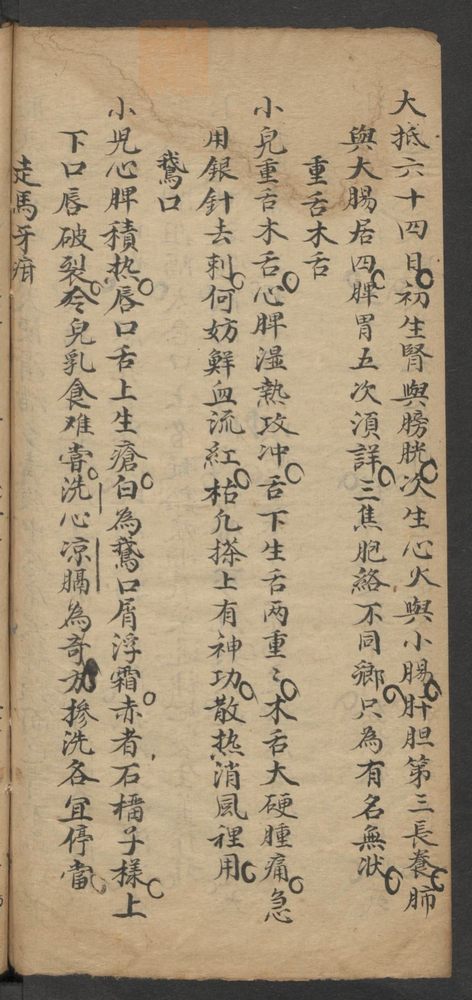 大抵六十四日初生腎與膀胱次生心火與小腸肝胆第三長養肺
與大腸居四脾胃五次須詳三焦胞絡不同鄉只為有名無狀
重舌木舌
小兒重舌木舌心脾濕熱攻冲舌下生舌两重〻木舌大硬腫痛急
用銀針去刺何妨鮮血流紅枯凢搽上有神功散热消風裡用
鵞口
小児心脾積热唇口舌上生瘡白為鵞口屑浮霜赤者石榴子様上
下口唇破裂令兒乳食难嘗洗心凉膈為竒方掺洗各冝停當
走馬牙疳